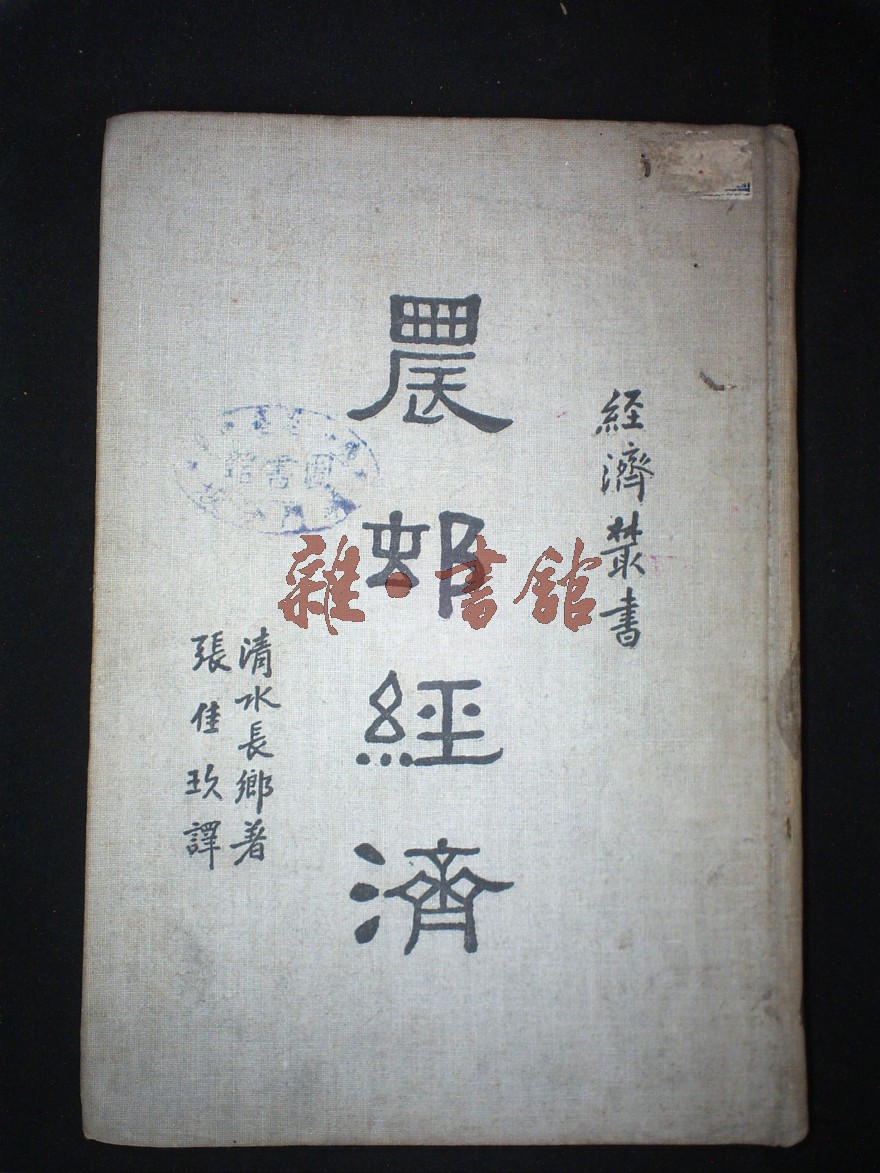 經濟叢書
農邨經濟
清水長鄉著
張佳玖譯
圖書館
雜·書館